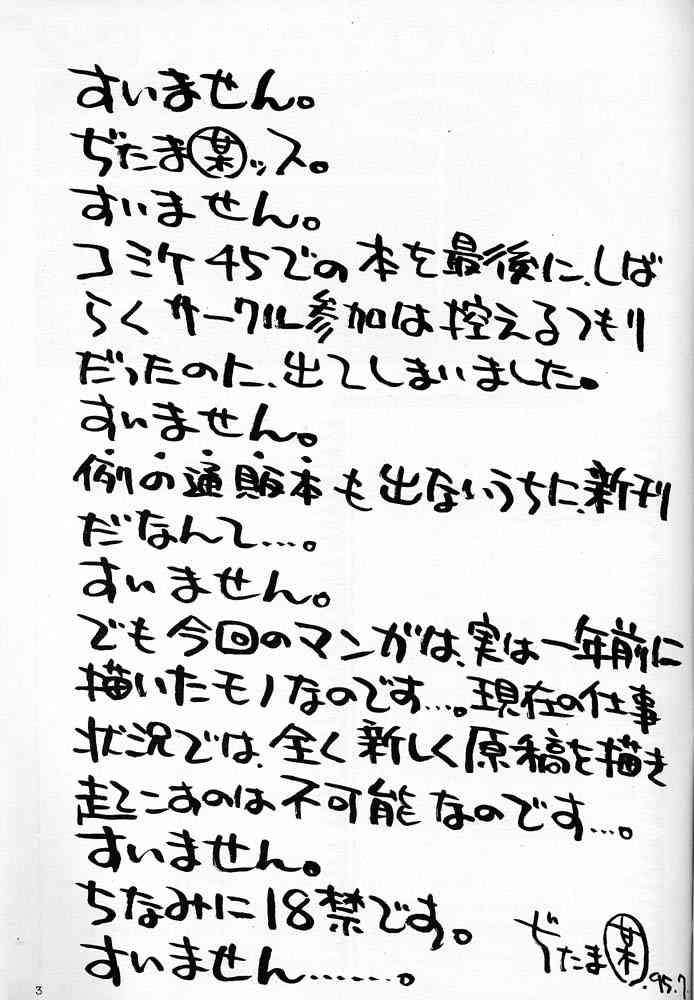 すいません。
ぢたま某ッス。
すいません。
コミケ45での本を最後に、しば
らくサークル参加は控えるつもり
だったのに、出てしまいました。
すいません。
例の通販本も出ないうちに、新刊
だなんて…。
すいません。
でも今回のマンガは、実は一年前に
描いたモノなのです…。現在の仕事
状況では、全く新しく原稿を描き
起こすのは不可能なのです…。
すいません。
ちなみに18禁です。
すいません……。
ぢたま某 .95.7.
3